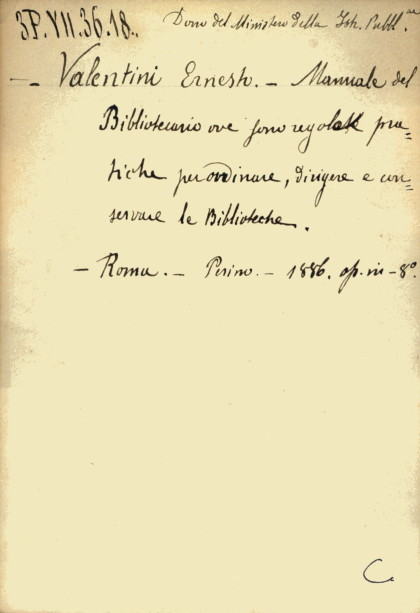 3P.VII.36.18. Dono del Ministero della Ist. Pubbl.ca
- Valentini Ernesto. - Manuale del
Bibliotecario ove sono regolate pra=
tiche per ordinare, dirigere e con=
servare le Biblioteche.
- Roma. - Perino. - 1886. op. in-8º.
C